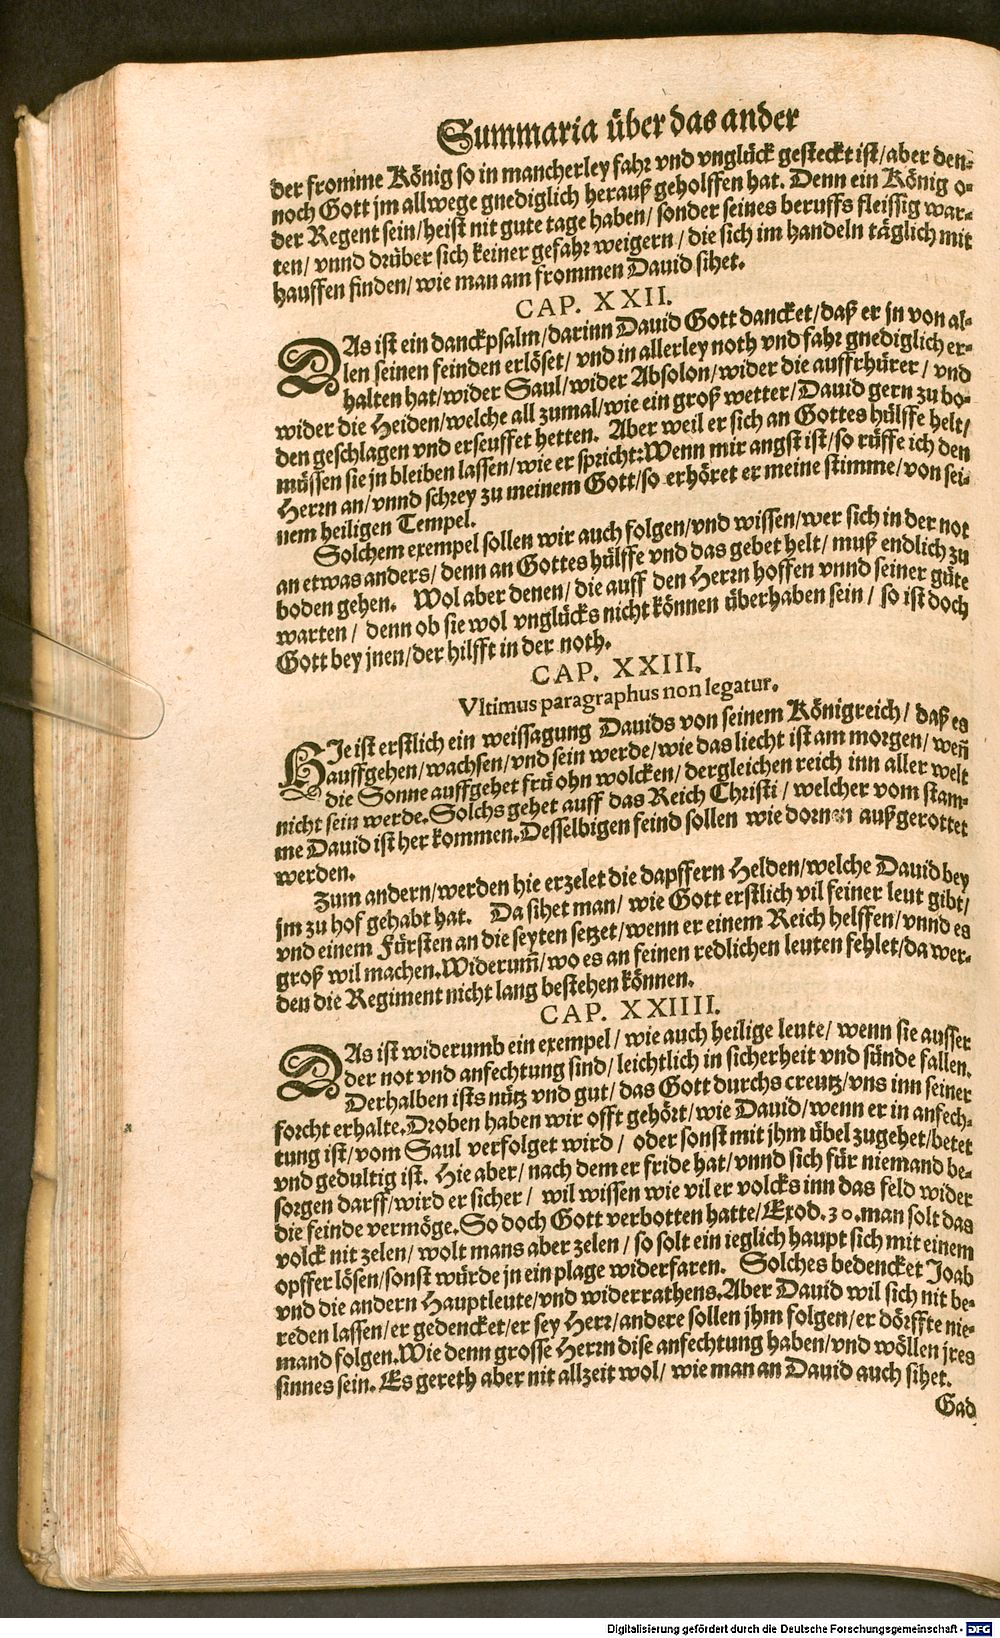 Summaria über das ander
der fromme König so in mancherley fahr vnd vnglück gesteckt ist/aber den-
noch Gott jm allwege gnediglich herauß geholffen hat. Denn ein König o-
der Regent sein/heist nit gute tage haben/ sonder seines beruffs fleissig war-
ten/ vnnd drüber sich keiner gefahr weigern/ die sich im handeln täglich mit
hauffen finden/ wie man am frommen Dauid sihet.
CAP. XXII.
DAs ist ein danckpsalm/darinn Dauid Gott dancket/daß er jn von al-
len seinen feinden erlöset/ vnd in allerley noth vnd fahr gnediglich er-
halten hat/wider Saul/wider Absolon/wider die auffrhürer/ vnd
wider die Heiden/welche all zumal/wie ein groß wetter/Dauid gern zu bo-
den geschlagen vnd erseuffet hetten. Aber weil er sich an Gottes hülffe helt/
müssen sie jn bleiben lassen/wie er spricht:Wenn mir angst ist/so rüffe ich den
Herrn an/vnnd schrey zu meinem Gott/so erhöret er meine stimme/von sei-
nem heiligen Tempel.
Solchem exempel sollen wir auch folgen/vnd wissen/wer sich in der not
an etwas anders/ denn an Gottes hülffe vnd das gebet helt/ muß endlich zu
boden gehen. Wol aber denen/ die auff den Herrn hoffen vnnd seiner güte
warten/ denn ob sie wol vnglücks nicht können überhaben sein/ so ist doch
Gott bey jnen/der hilfft in der noth.
CAP. XXIII.
Vltimus paragraphus non legatur.
HIe ist erstlich ein weissagung Dauids von seinem Königreich/ daß es
auffgehen/wachsen/vnd sein werde/wie das liecht ist am morgen/ wenn̄
die Sonne auffgehet frü ohn wolcken/ dergleichen reich inn aller welt
nicht sein werde.Solchs gehet auff das Reich Christi/ welcher vom stam-
me Dauid ist her kommen.Desselbigen feind sollen wie dornen außgerottet
werden.
Zum andern/werden hie erzelet die dapffern Helden/welche Dauid bey
jm zu hof gehabt hat. Da sihet man/ wie Gott erstlich vil feiner leut gibt/
vnd einem Fürsten an die seyten setzet/wenn er einem Reich helffen/vnnd es
groß wil machen.Widerum̄/wo es an feinen redlichen leuten fehlet/da wer-
den die Regiment nicht lang bestehen können.
CAP. XXIIII.
DAs ist widerumb ein exempel/ wie auch heilige leute/ wenn sie ausser
der not vnd anfechtung sind/ leichtlich in sicherheit vnd sünde fallen.
Derhalben ists nütz vnd gut/ das Gott durchs creutz/vns inn seiner
forcht erhalte.Droben haben wir offt gehört/wie Dauid/wenn er in anfech-
tung ist/vom Saul verfolget wird/ oder sonst mit jhm übel zugehet/betet
vnd gedultig ist. Hie aber/ nach dem er fride hat/vnnd sich für niemand be-
sorgen darff/wird er sicher/ wil wissen wie vil er volcks inn das feld wider
die feinde vermöge.So doch Gott verbotten hatte/Exod.30.man solt das
volck nit zelen/ wolt mans aber zelen/ so solt ein ieglich haupt sich mit einem
opffer lösen/sonst würde jn ein plage widerfaren. Solches bedencket Joab
vnd die andern Hauptleute/vnd widerrathens.Aber Dauid wil sich nit be-
reden lassen/er gedencket/er sey Herr/andere sollen jhm folgen/er dörffte nie-
mand folgen.Wie denn grosse Herrn dise anfechtung haben/vnd wöllen jres
sinnes sein. Es gereth aber nit allzeit wol/ wie man an Dauid auch sihet.
Gad
Digitalisierung gefördert durch die Deutsche Forschungsgemeinschaft - DFG